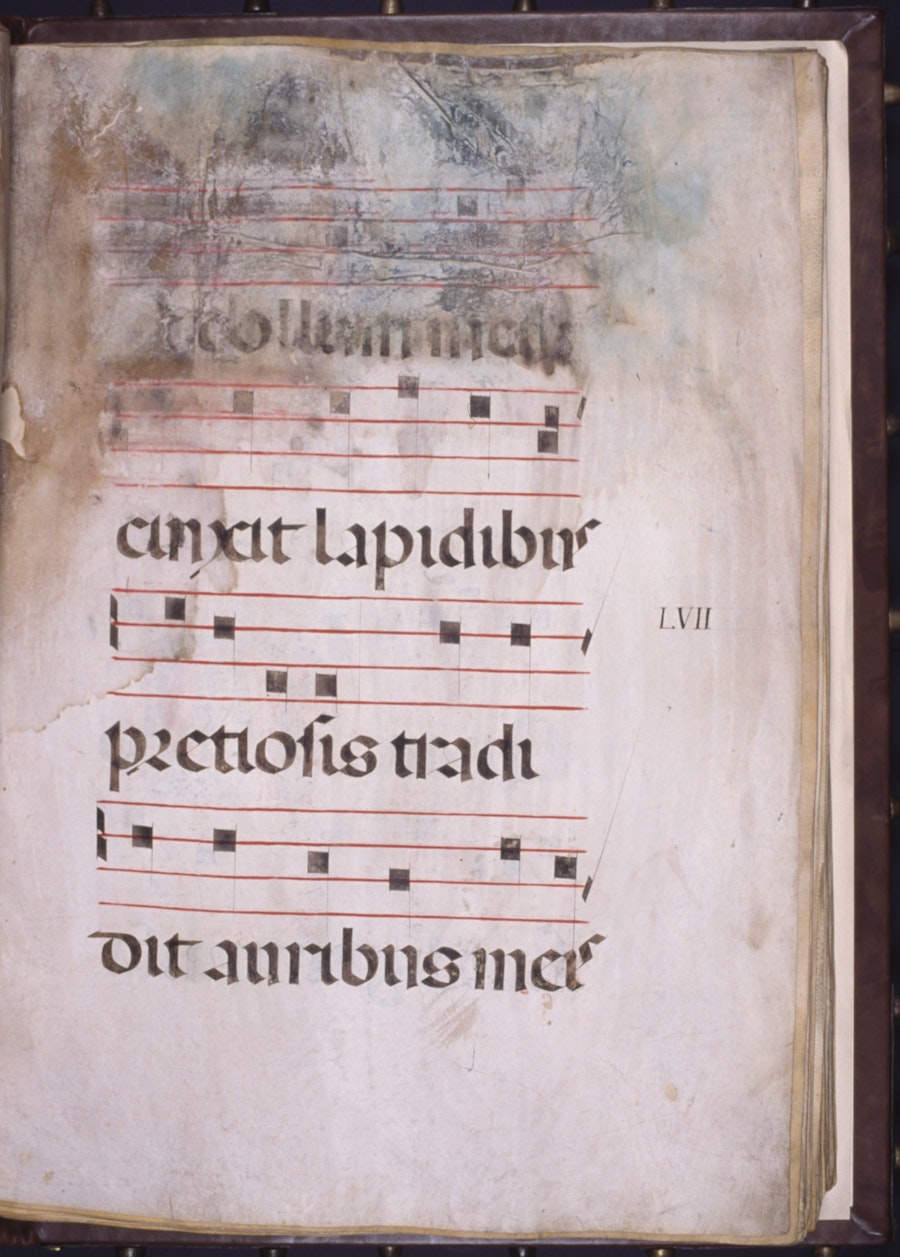 & collum meuz
cinxit lapidibus
LVII
pretiosis tradi
dit auribus meis